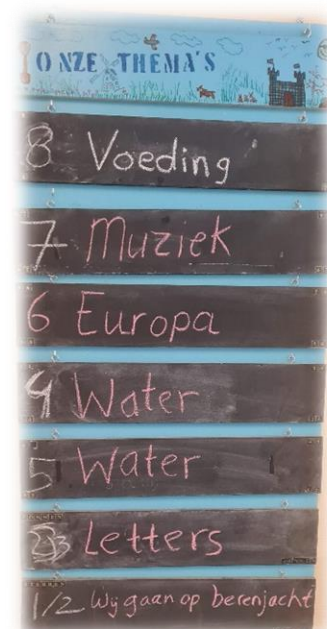 ONZE THEMA'S
8 Voeding
7 Muziek
6 Europa
4 Water
5 Water
2/3 Letters
1/2 Wij gaan op berenjacht